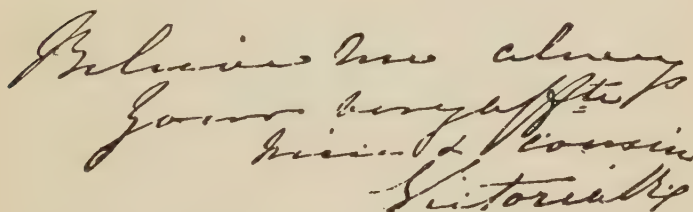 Believe me always
Yours very affte
Niece & cousin
Victoria Rg